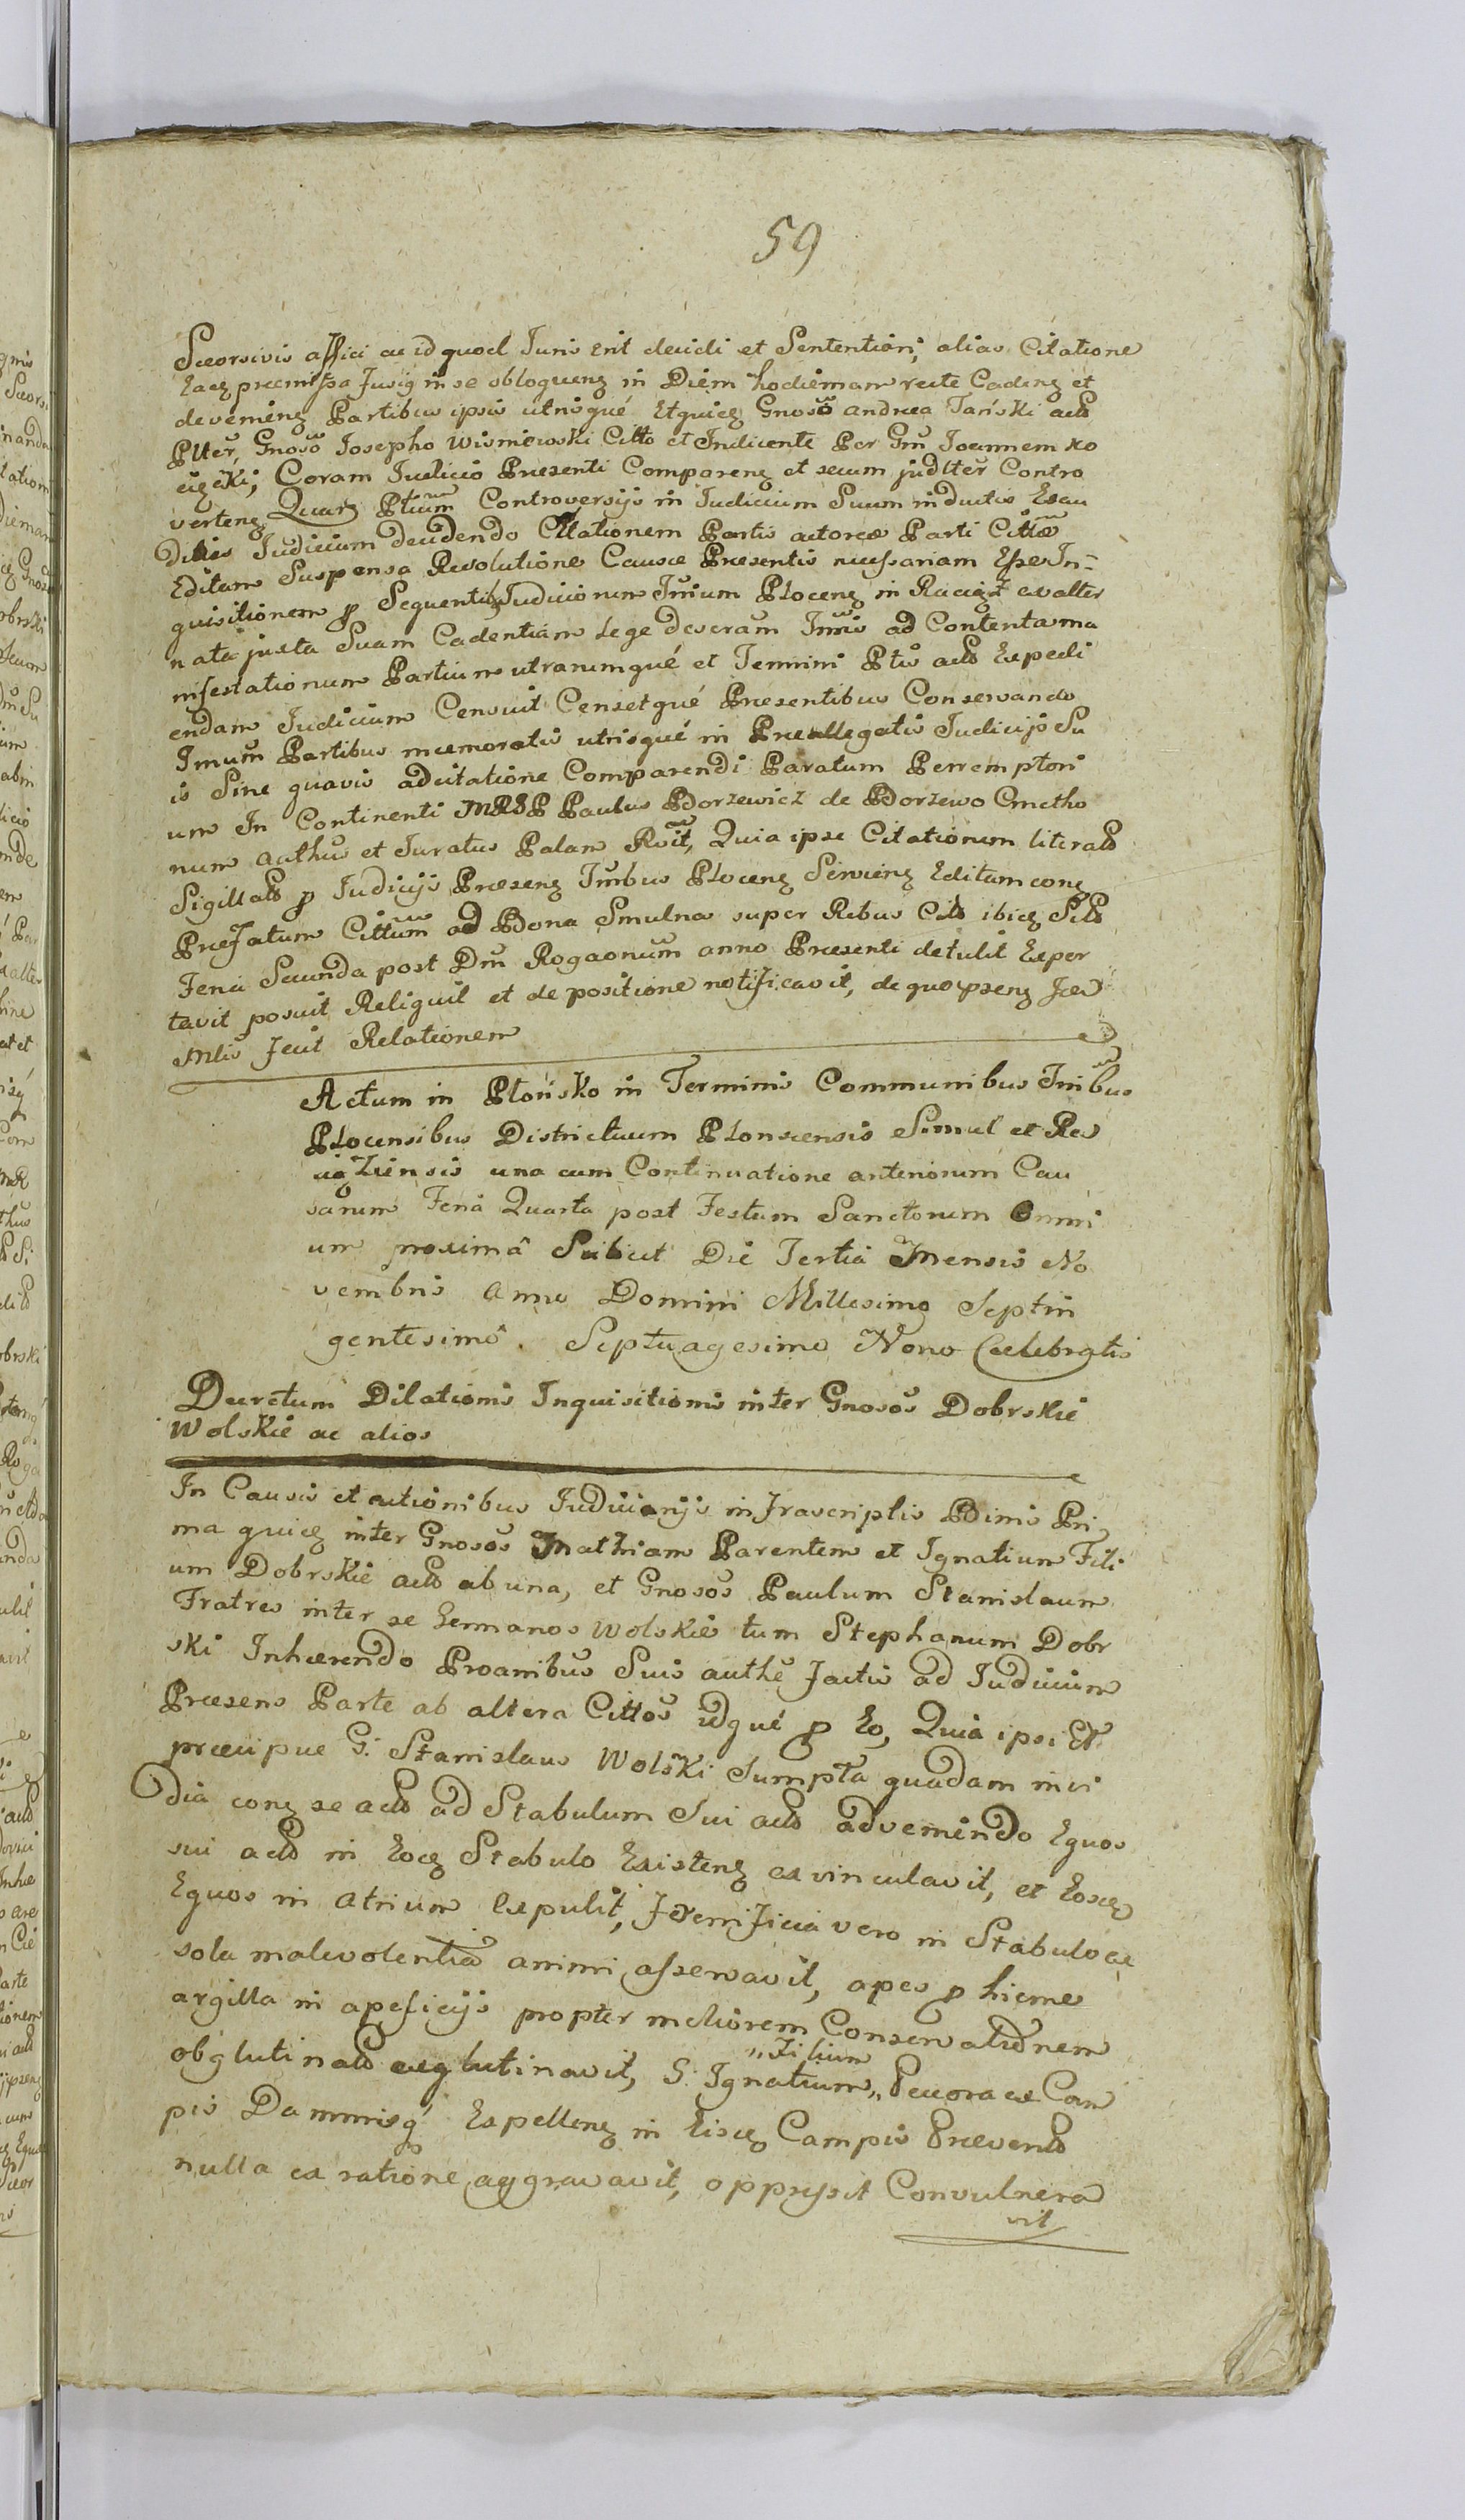 59
Seorsivis affici ac id quod Juris erit decidi et Sententiari, alias Citatione
Eacz præmissa Jusig in se obloquenz in Diem hodiernam recte Cadenz et
devenienz Partibus ipsis utrisqué Etquidz Gnoso Andrea Tański actô
Plter, Gnoso Josepho Wisniewski Citto et Indicente Per Gm Joannem Ko
cięcki; Coram Judicio Præsenti Comparenz et secum judlter Contro
vertenz Quarz Ptium Controversijs in Judicium Suum inductis Exau
ditis Judicium decidendo Citationem Partis actoreæ Parti Cittæ
Editam Suspensa Resolutione Causæ Præsentis necessariam Esse In=
quisitionem p Sequentibz Judiciorum Trium Plocenz in Raciąż exalter
nata juxta Suam Cadentiam lege descram Tmis ad Contenta ma
nifestationum Partium utrarumqué et Termini Ptis actô Expedi
endam Judicium Censuit Censetqué Præsentibus Conservando
Tmum Partibus memoratis utrisqué in Præallegatis Judicijs Su
is Sine quavis adcitatione Comparendi Paratum Perremptori
um In Continenti MRSP Paulus Borzewicz de Borzewo Cmetho
num authus et Juratus Palam Rvit, Quia ipse Citationum literas
Sigillatô p Judicijs Præsenz Tmbus Plocenz Servienz Editam conz
Præfatum Cittum ad Bona Smulna super Rebus Citô ibidz Sitô
Feria Secunda post Dm Rogaonum anno Præsenti detulit Expor
tavit posuit Reliquit et de positione notificavit, de quo psenz fer
Mlis fecit Relationem
Actum in Płońsko in Terminis Communibus Tribus
Plocensibus Districtuum Plonscensis Simul et Ra
ciążiensis una cum Continuatione anteriorum Cau
sarum Feria Quarta post Festum Sanctorum Omni
um proximâ Scilicet Die Tertia Mensis No
vembris Anno Domini Millesimo Septin
gentesimô Septuagesimo Nono Celebratis
Decretum Dilationis Inquisitionis inter Gnosos Dobrskie
Wolskie ac alios
In Causis et actionibus Judiciarijs infrascriptis Binis Pri
ma quidz inter Gnosos Mathiam Parentem et Ignatium Fili
um Dobrskie actô ab una, et Gnosos Paulum Stanislaum
Fratres inter se Germanos Wolskie tum Stephanum Dobr
ski Inhærendo Proanibus Suis authe factis ad Judicium
Præsens Parte ab altera Cittos idqué p Eo, Quia ipsi Et
præcipue G: Stanislaus Wolski Sumpta quadam invi
dia conz se actô ad Stabulum Sui actô adveniendo Equos
sui actô in Eodz Stabulo Existenz exvinculavit, et Eosdz
Equos in atrium Expulit, Fornificia vero in Stabulo ex
sola malevolentia animi asservavit, apes p hieme
argilla in apeficijs propter meliorem Conservationem
obglutinatô deglutinavit, G: Ignatium „Filium„ Pecora ex Cam
pis Damnisq' Expellenz in Eisdz Campis Prævenitô
nulla ex ratione aggravavit, oppressit Convulnera
vit